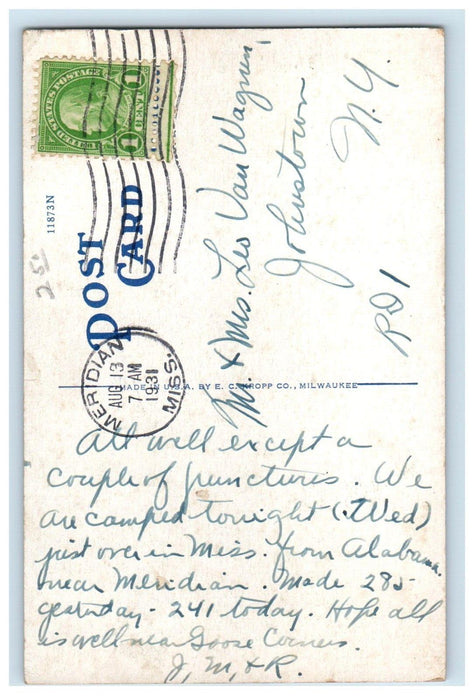 UNITED STATES POSTAGE
CENT
11873N
POST
CARD
MERIDIAN
AUG 13
7 AM
1931
MISS.
Mr. & Mrs. Leo Van Wagnen
Johnstown
N.Y.
RD 1
MADE IN U.S.A. BY E. C. KROPP CO., MILWAUKEE
All well except a
couple of punctures. We
are camped tonight (Wed)
just over in Miss. from Alabama
near Meridian. Made 285
yesterday - 241 today. Hope all
is well near Goose Corners.
J, M, & R.